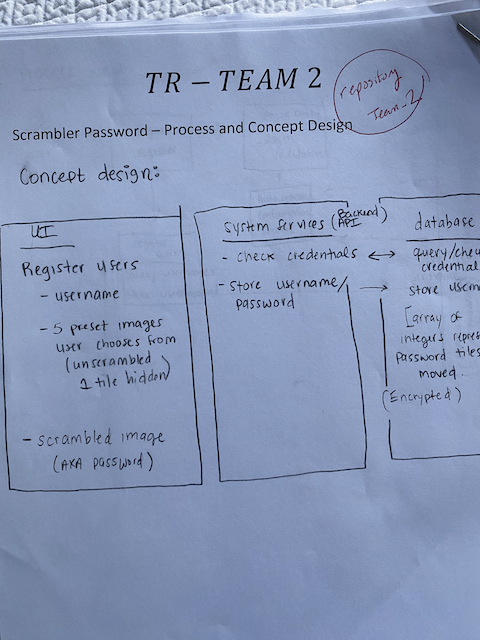 TR – TEAM 2
repository
Team-2
Scrambler Password – Process and Concept Design
Concept design:
UI
Register users
- username
- 5 preset images
user chooses from
(unscrambled
1 tile hidden)
- scrambled image
(AKA password)
System services (Backend API)
- check credentials ↔
- store username/ →
password
database
query/chec
credential
store usern
[array of
integers repres
password tiles
moved.
(Encrypted)